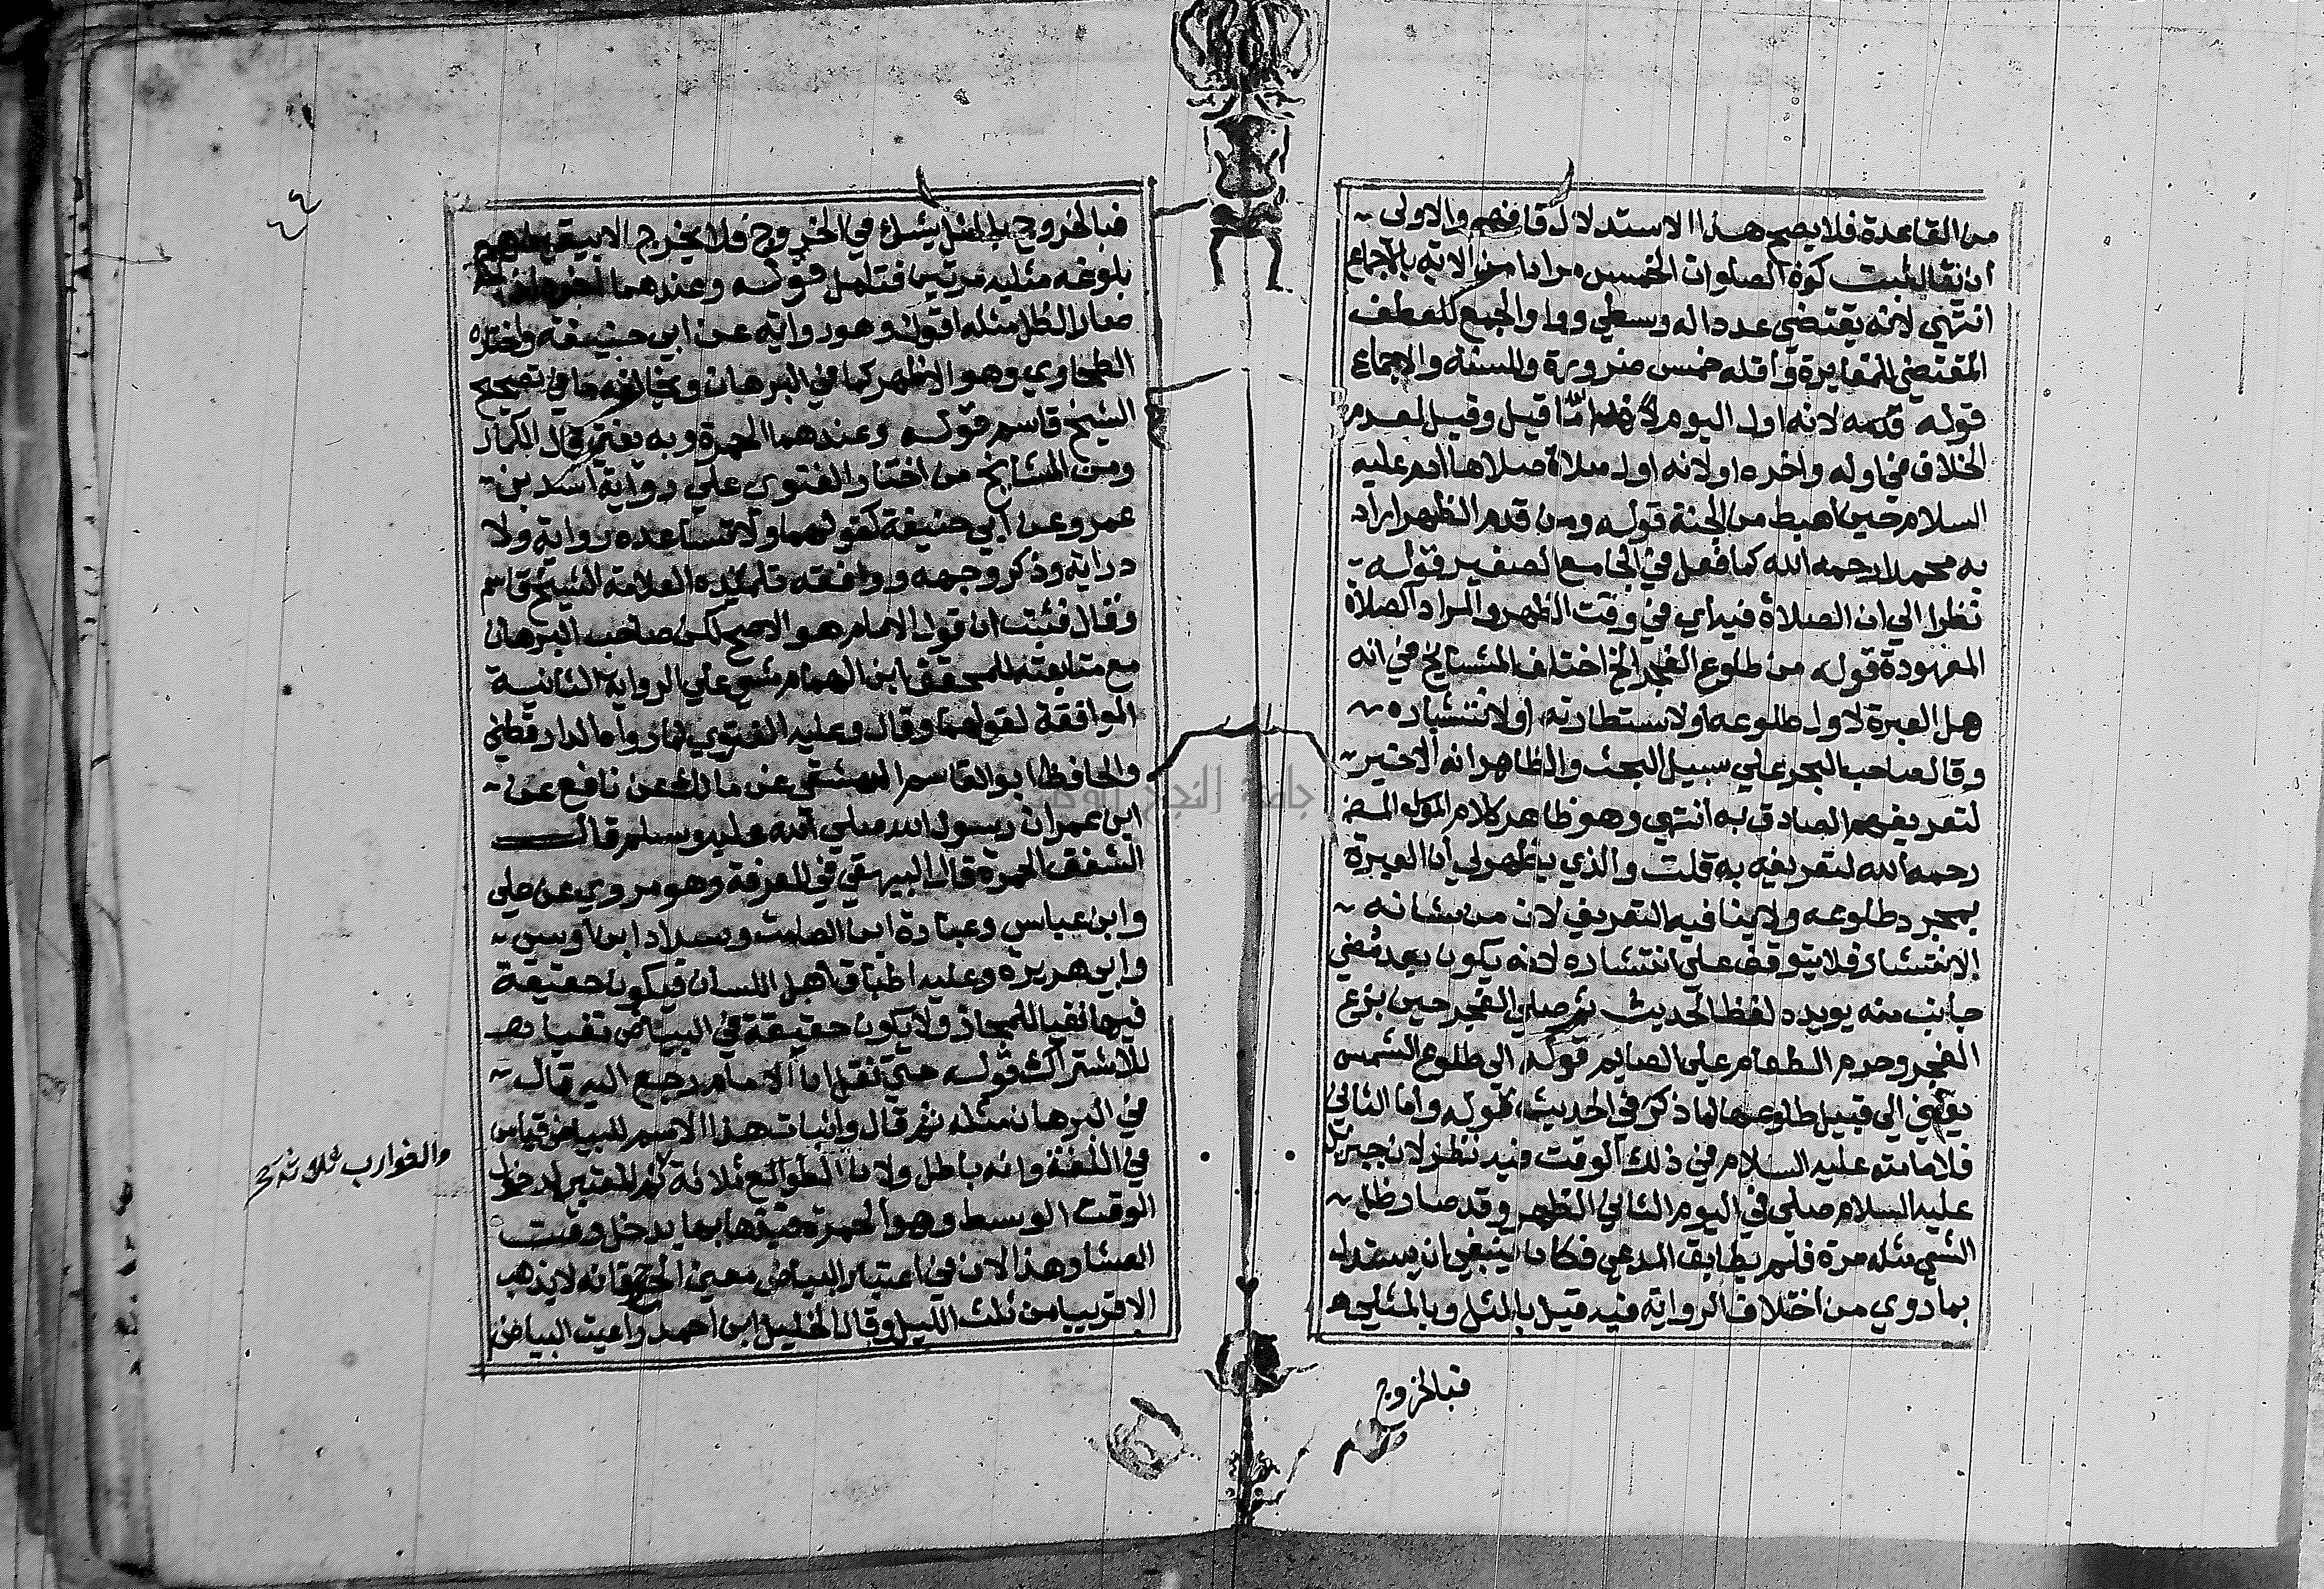 من القاعدة فلا يصح هذا الاستدلال فافهم والاولى
ان يقال ثبت كون الصلوات الخمس مرادا من الاية بالاجماع
انتهي لانه يقتضي عددا له وسطي وواو الجمع للعطف
المقتضي للمغايرة واقله خمس ضرورة وللسنة والاجماع
قوله قدمه لانه اول اليوم قيل وقيل لعدم
الخلاف في اوله واخره او لانه اول صلاة صلاها ادم عليه
السلام حين اهبط من الجنة قوله ومن قدم الظهر اراد
به محمدا رحمه الله كما فعل في الجامع الصغير قوله
نظرا الي ان الصلاة فيه اي في وقت الظهر والمراد الصلاة
المعهودة قوله من طلوع الفجر الخ اختلف المشايخ في انه
هل العبرة لاول طلوعه او لاستطارته او لانتشاره
وقال صاحب البحر علي سبيل البحث والظاهر انه الاخير
لتعريفهم الصادق به انتهي وهو ظاهر كلام المص
رحمه الله لتعريفه به قلت والذي يظهر لي ان العبرة
بمجرد طلوعه ولا ينافيه التعريف لان من شانه
الانتشار فلا يتوقف علي انتشاره لانه يكون بعد مضي
جانب منه يويده لفظ الحديث ثم صلي الفجر حين بزع
الفجر وحرم الطعام علي الصايم قوله الي طلوع الشمس
يعني الي قبيل طلوعها لما ذكر في الحديث قوله واما الثاني
فلامامته عليه السلام في ذلك الوقت فيه نظر لان جبريل
عليه السلام صلي في اليوم الثاني الظهر وقد صار ظل
الشي مثله مرة فلم يطابق المدعي فكان ينبغي ان يستدل
بما روي من اختلاف الرواية فيه قيل بالمثل وبالمثلين
فبالخروج
فبالخروج بالمثل يشك في الخروج فلا يخرج الا بيقين
بلوغه مثليه مرتين فتامل قوله وعندهما اخره اذا
صار الظل مثله اقول وهو رواية عن ابي حنيفة واختاره
الطحاوي وهو الاظهر كما في البرهان ويخالفه ما في تصحيح
الشيخ قاسم قوله وعندهما الحمرة وبه يفتى قال الكمال
ومن المشايخ من اختار الفتوي علي رواية اسد بن
عمرو عن ابي حنيفة كقولهما ولا تساعده رواية ولا
دراية وذكر وجهه ووافقه تلميذه العلامة الشيخ قاسم
وقال فثبت ان قول الامام هو الاصح لكن صاحب البرهان
مع متابعته للمحقق ابن الهمام مشي علي الرواية الثانية
الموافقة لقولهما وقال وعليه الفتوي لما روا الدارقطني
والحافظ ابو القاسم الدمشقي عن مالك عن نافع عن
ابن عمر ان رسول الله صلي الله عليه وسلم قال
الشفق الحمرة قال البيهقي في المعرفة وهو مروي عن علي
وابن عباس وعبادة ابن الصامت وشداد ابن اوس
وابي هريرة وعليه اطباق اهل اللسان فيكون حقيقة
فيها نفيا للمجاز ولا يكون حقيقة في البياض نفيا
للاشتراك قوله حتي نقل ان الامام رجع اليه قال
في البرهان مثله ثم قال واثبات هذا الاسم للبياض قياس
في اللغة وانه باطل ولان الطوالع ثلاثة ثم المعتبر لدخول
الوقت الوسط وهو الحمرة فبذهابها يدخل وقت
العشا وهذا لان في اعتبار البياض معين الحرج فانه لا يذهب
الا قريبا من ثلث الليل وقال الخليل ابن احمد راعيت البياض
والغوارب ثلاثة صح